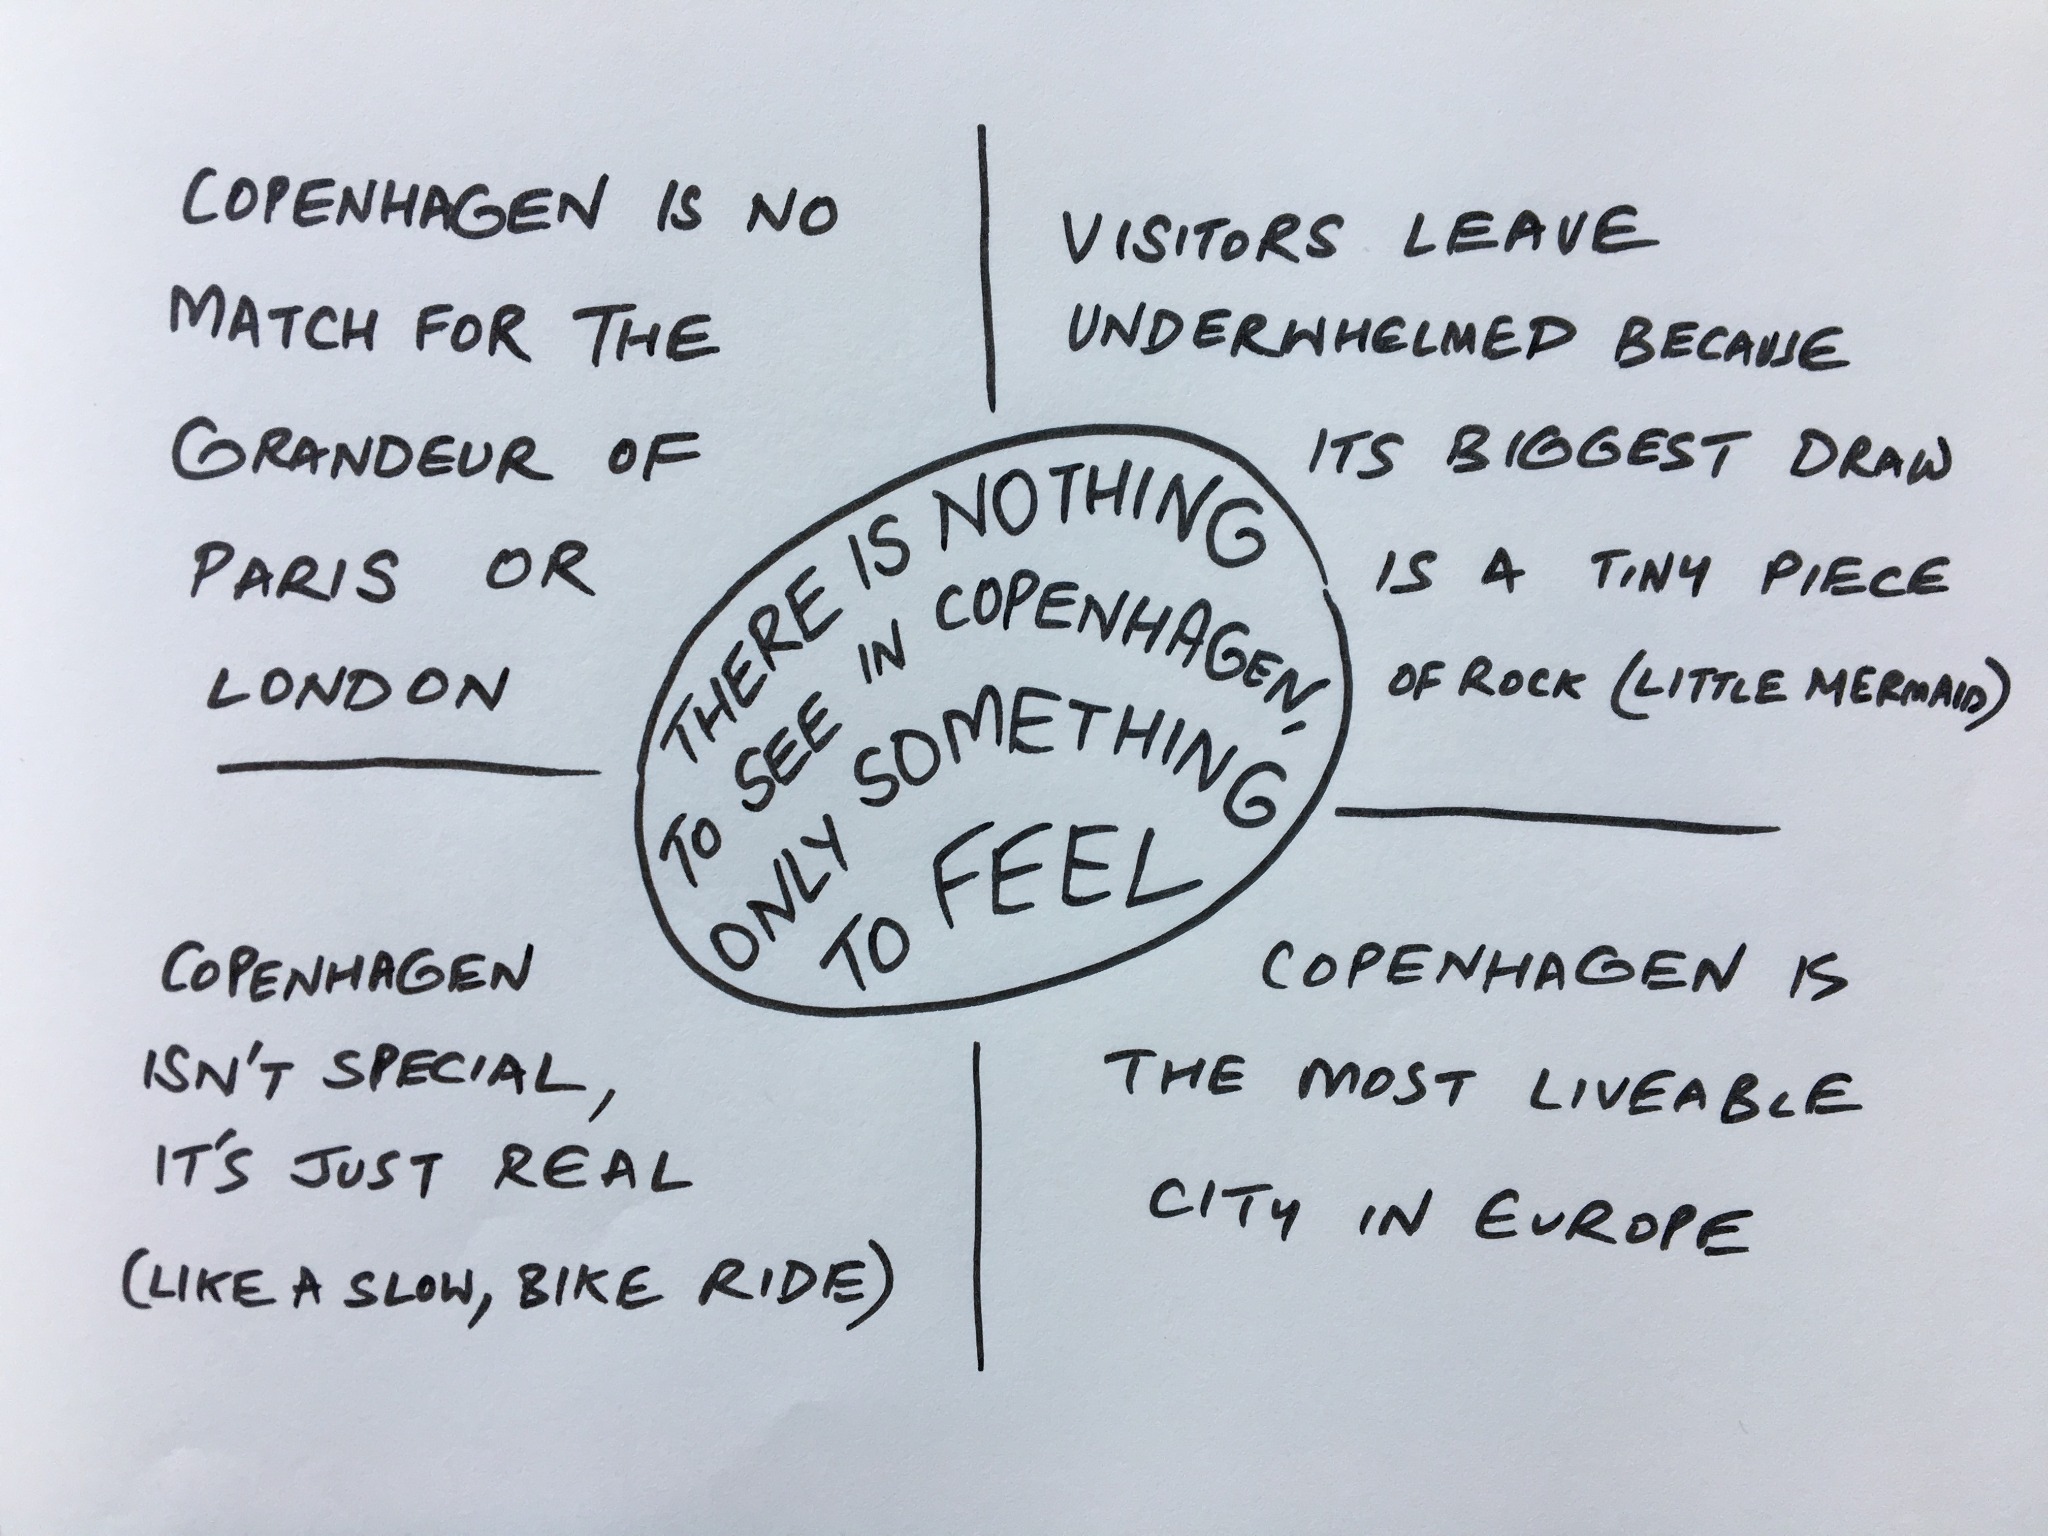 COPENHAGEN IS NO
MATCH FOR THE
GRANDEUR OF
PARIS OR
LONDON
VISITORS LEAVE
UNDERWHELMED BECAUSE
ITS BIGGEST DRAW
IS A TINY PIECE
OF ROCK (LITTLE MERMAID)
THERE IS NOTHING
TO SEE IN COPENHAGEN,
ONLY SOMETHING
TO FEEL
COPENHAGEN
ISN'T SPECIAL,
IT'S JUST REAL
(LIKE A SLOW, BIKE RIDE)
COPENHAGEN IS
THE MOST LIVEABLE
CITY IN EUROPE